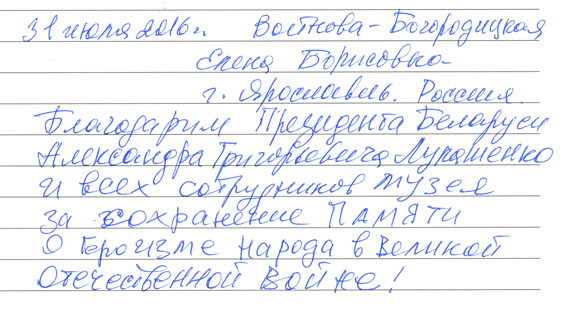 31 июля 2016 г. Войнова-Богородицкая
Елена Борисовна
г. Ярославль. Россия.
Благодарим Президента Беларуси
Александра Григорьевича Лукашенко
и всех сотрудников музея
за сохранение ПАМЯТИ
о героизме народа в Великой
Отечественной Войне!